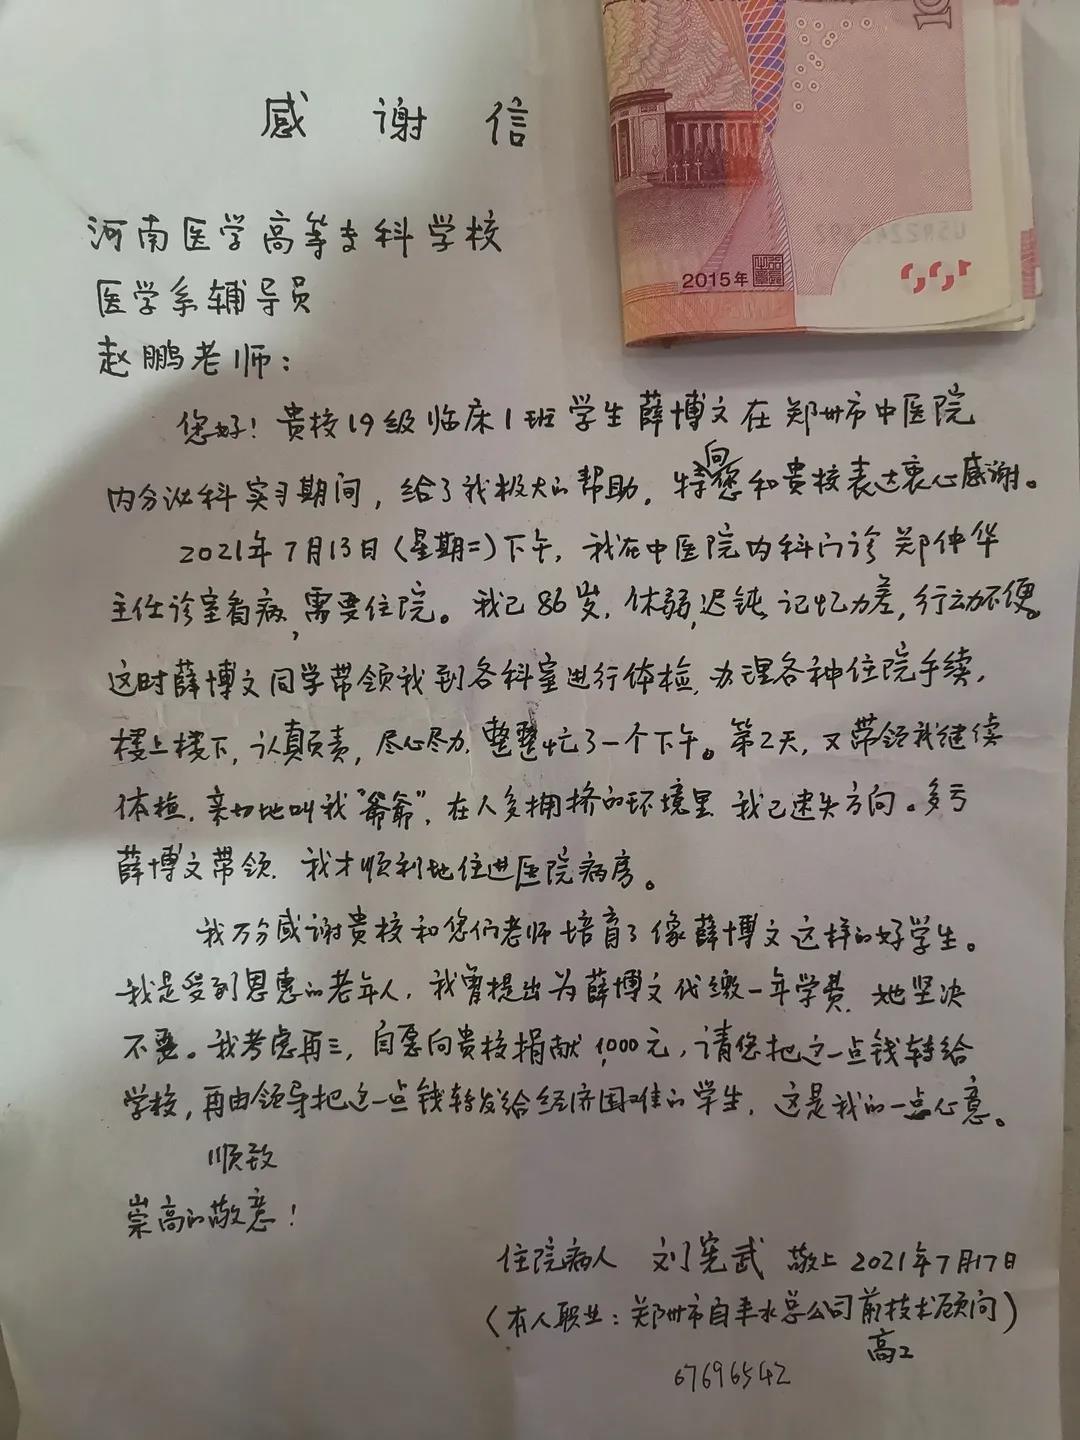 感谢信
10
2015年
100
河南医学高等专科学校
医学系辅导员
赵鹏老师：
您好！贵校19级临床1班学生薛博文在郑州市中医院
内分泌科实习期间，给了我极大的帮助，特向您和贵校表达衷心感谢。
2021年7月13日（星期二）下午，我在中医院内科门诊郑仲华
主任诊室看病，需要住院。我已86岁，体弱，迟钝，记忆力差，行动不便。
这时薛博文同学带领我到各科室进行体检，办理各种住院手续，
楼上楼下，认真负责，尽心尽力，整整忙了一个下午。第2天，又带领我继续
体检，亲切地叫我“爷爷”，在人多拥挤的环境里我已迷失方向。多亏
薛博文带领，我才顺利地住进医院病房。
我万分感谢贵校和您们老师培育了像薛博文这样的好学生。
我是受到恩惠的老年人，我曾提出为薛博文代缴一年学费，她坚决
不要。我考虑再三，自愿向贵校捐献1,000元，请您把这一点钱转给
学校，再由领导把这一点钱转发给经济困难的学生，这是我的一点心意。
顺致
崇高的敬意！
住院病人 刘宪武 敬上 2021年7月17日
（本人职业：郑州市自来水总公司前技术顾问）
高工
67696542